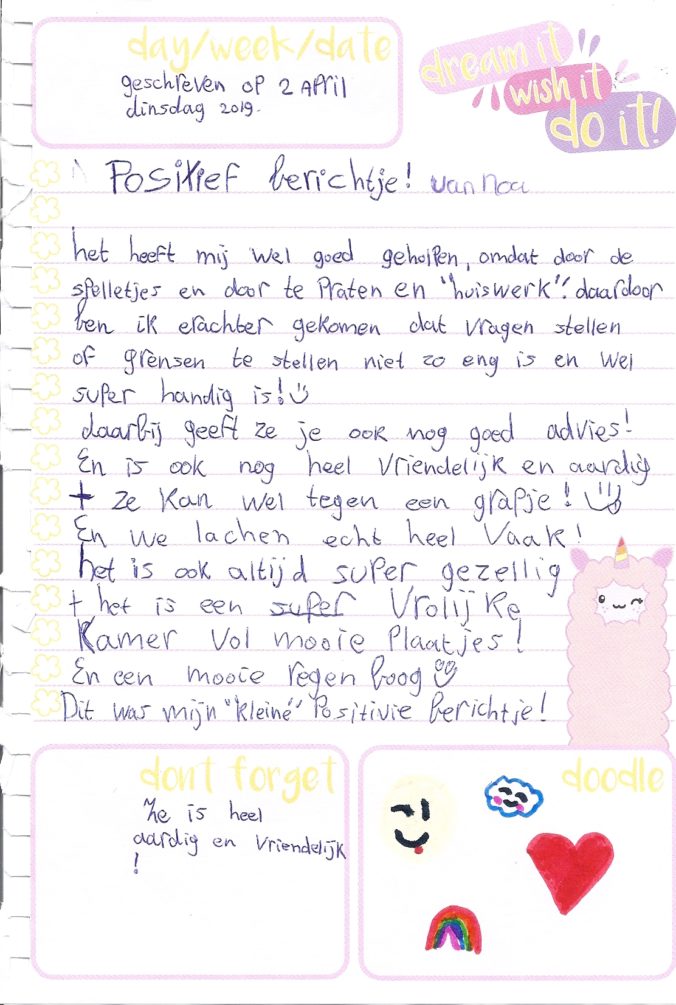 day/week/date
geschreven op 2 April
dinsdag 2019.
dream it
wish it
do it!
Positief berichtje! van Noa
het heeft mij wel goed geholpen, omdat door de
spelletjes en door te praten en "huiswerk". daardoor
ben ik erachter gekomen dat vragen stellen
of grensen te stellen niet zo eng is en wel
super handig is!
daarbij geeft ze je ook nog goed advies!
En is ook nog heel vriendelijk en aardig
+ ze kan wel tegen een grapje!
En we lachen echt heel vaak!
het is ook altijd super gezellig
+ het is een super vrolijke
Kamer vol mooie plaatjes!
En een mooie regenboog
Dit was mijn "kleine" Positivie berichtje!
dont forget
ze is heel
aardig en vriendelijk
!
doodle